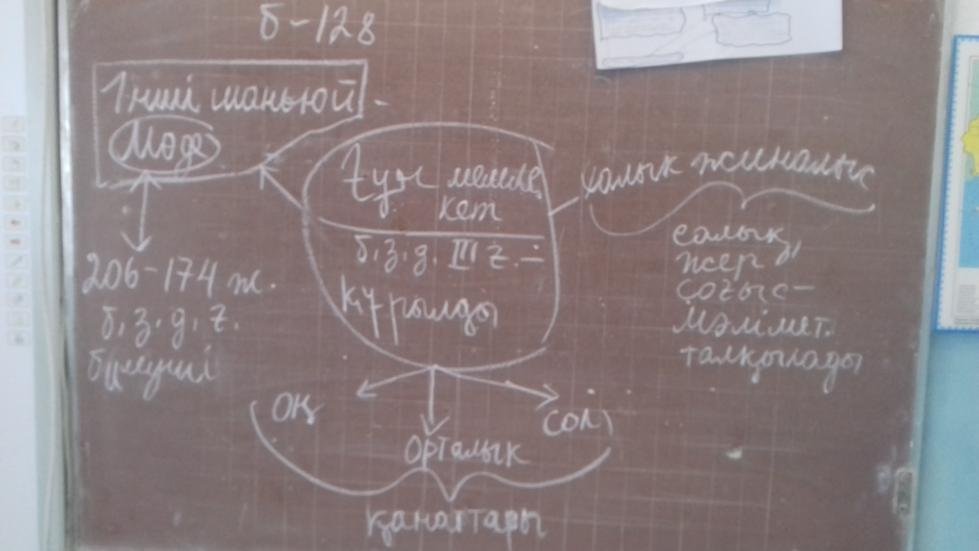 б-128
1нші шаньюй -
Мөде
206-174 ж.
б.з.д.ғ.
билеуші
Ғұн мемле
кет
б.з.д. III ғ. -
құрылды
халық жиналыс
салық,
жер
соғыс-
мәлімет.
талқылады
оң
орталық
сол
қанаттары